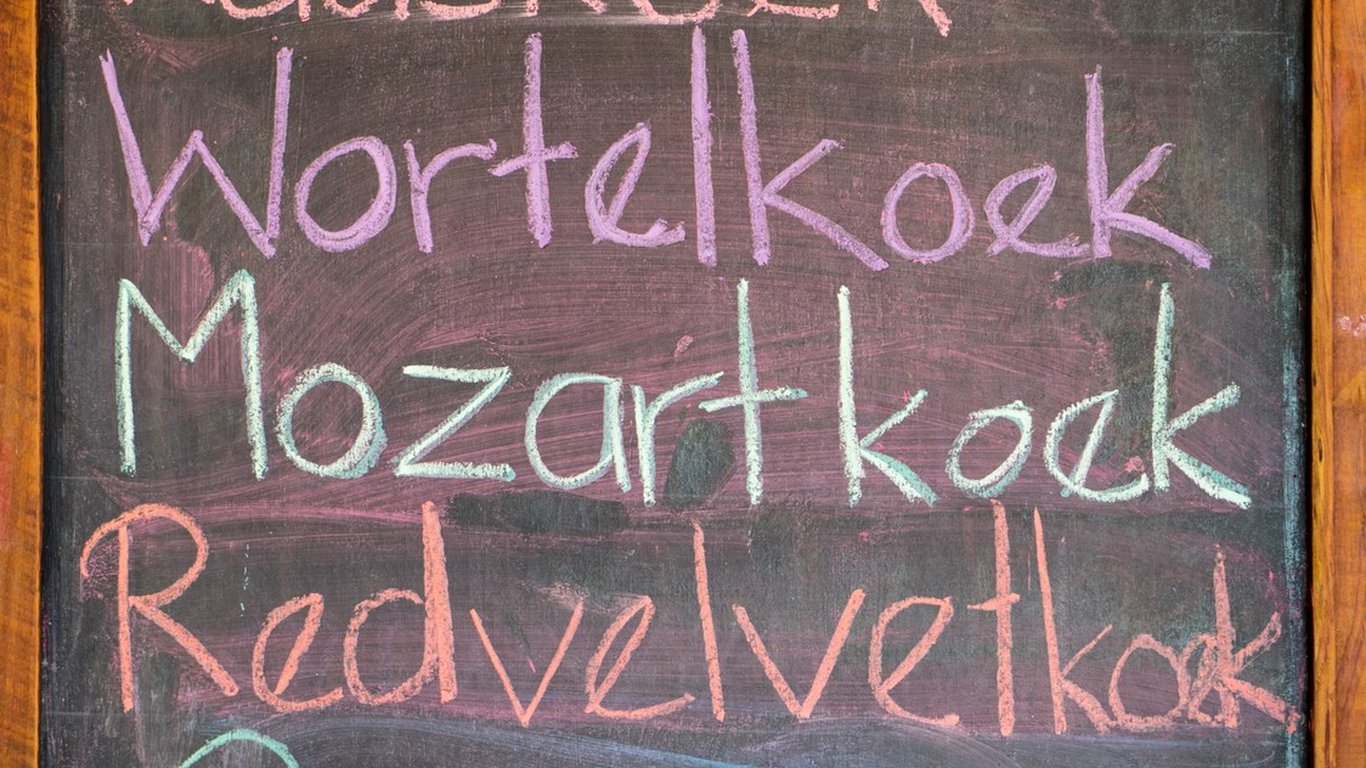 Wortelkoek
Mozartkoek
Redvelvetkoek